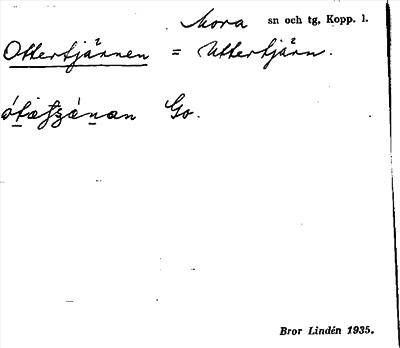 Mora sn och tg, Kopp. l.
Ottertjärnen = Uttertjärn.
Go.
Bror Lindén 1935.